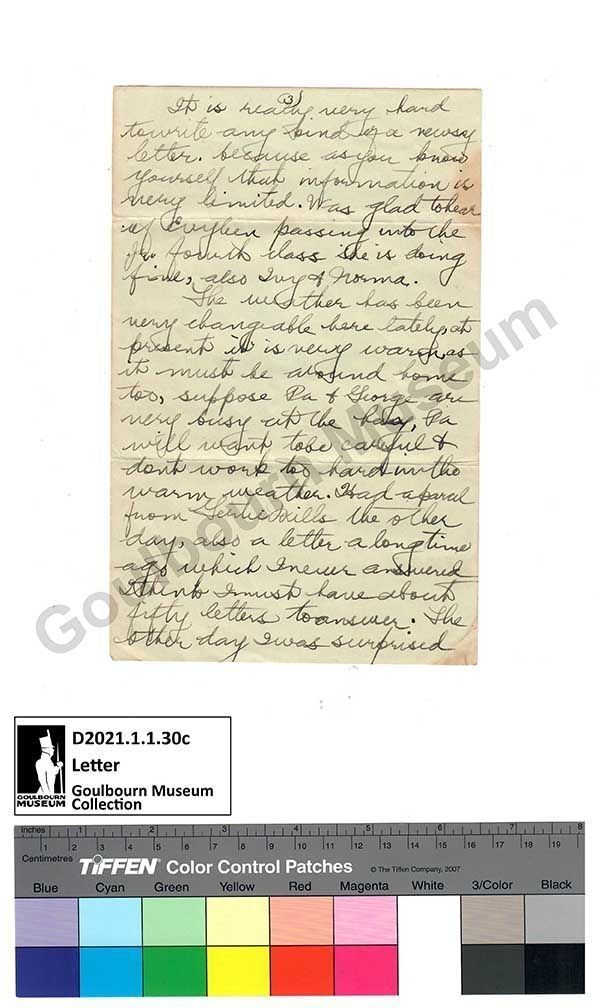 (3)
It is really very hard
to write any kind of a newsy
letter. because as you know
yourself that information is
very limited. Was glad to hear
of Evylen passing into the
Jr. fourth class she is doing
fine, also Ivy & Norma.
The weather has been
very changeable here lately, at
present it is very warm, as
it must be around home
too, suppose Pa & George are
very busy at the hay, Pa
will want to be careful &
dont work too hard in the
warm weather. Had a parcel
from Mills the other
day, also a letter a long time
ago which I never answered
I think I must have about
fifty letters to answer. The
other day I was surprised
Goulbourn Museum
GOULBOURN
MUSEUM
D2021.1.1.30c
Letter
Goulbourn Museum
Collection
Inches 1 2 3 4 5 6 7 8
1 2 3 4 5 6 7 8 9 10 11 12 13 14 15 16 17 18 19
Centimetres
TIFFEN® Color Control Patches © The Tiffen Company, 2007
Blue Cyan Green Yellow Red Magenta White 3/Color Black